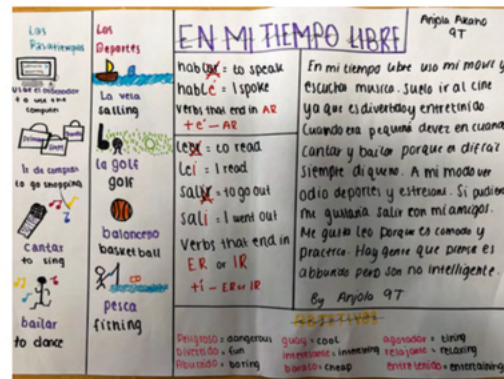 Los
Pasatiempos
Usar el ordenador
to use the
computer
Ir de compras
to go shopping
cantar
to sing
bailar
to dance
Los
Deportes
La vela
sailing
la golf
golf
baloncesto
basketball
pesca
fishing
EN MI TIEMPO LIBRE
Anjola Akano
9T
hablar = to speak
hablé = I spoke
verbs that end in AR
+é - AR
leer = to read
leí = I read
salir = to go out
salí = I went out
Verbs that end in
ER or IR
+í - ER or IR
En mi tiempo libre uso mi movil y
escucho musica. Suelo ir al cine
ya que es divertido y entretenido
Cuando era pequeña de vez en cuando
cantar y bailar porque
siempre A mi modo ver
odio deportes y Si pudiera
me gustaria salir con mi amigos.
Me gusta leo porque es comodo y
practico. Hay gente que piense es
abburido pero son no intelligente.
By Anjola 9T
ADJETIVOS
Peligroso = dangerous
divertido = fun
Aburrido = boring
guay = cool
interesante = interesting
barato = cheap
agotador = tiring
relajante = relaxing
entretenido = entertaining